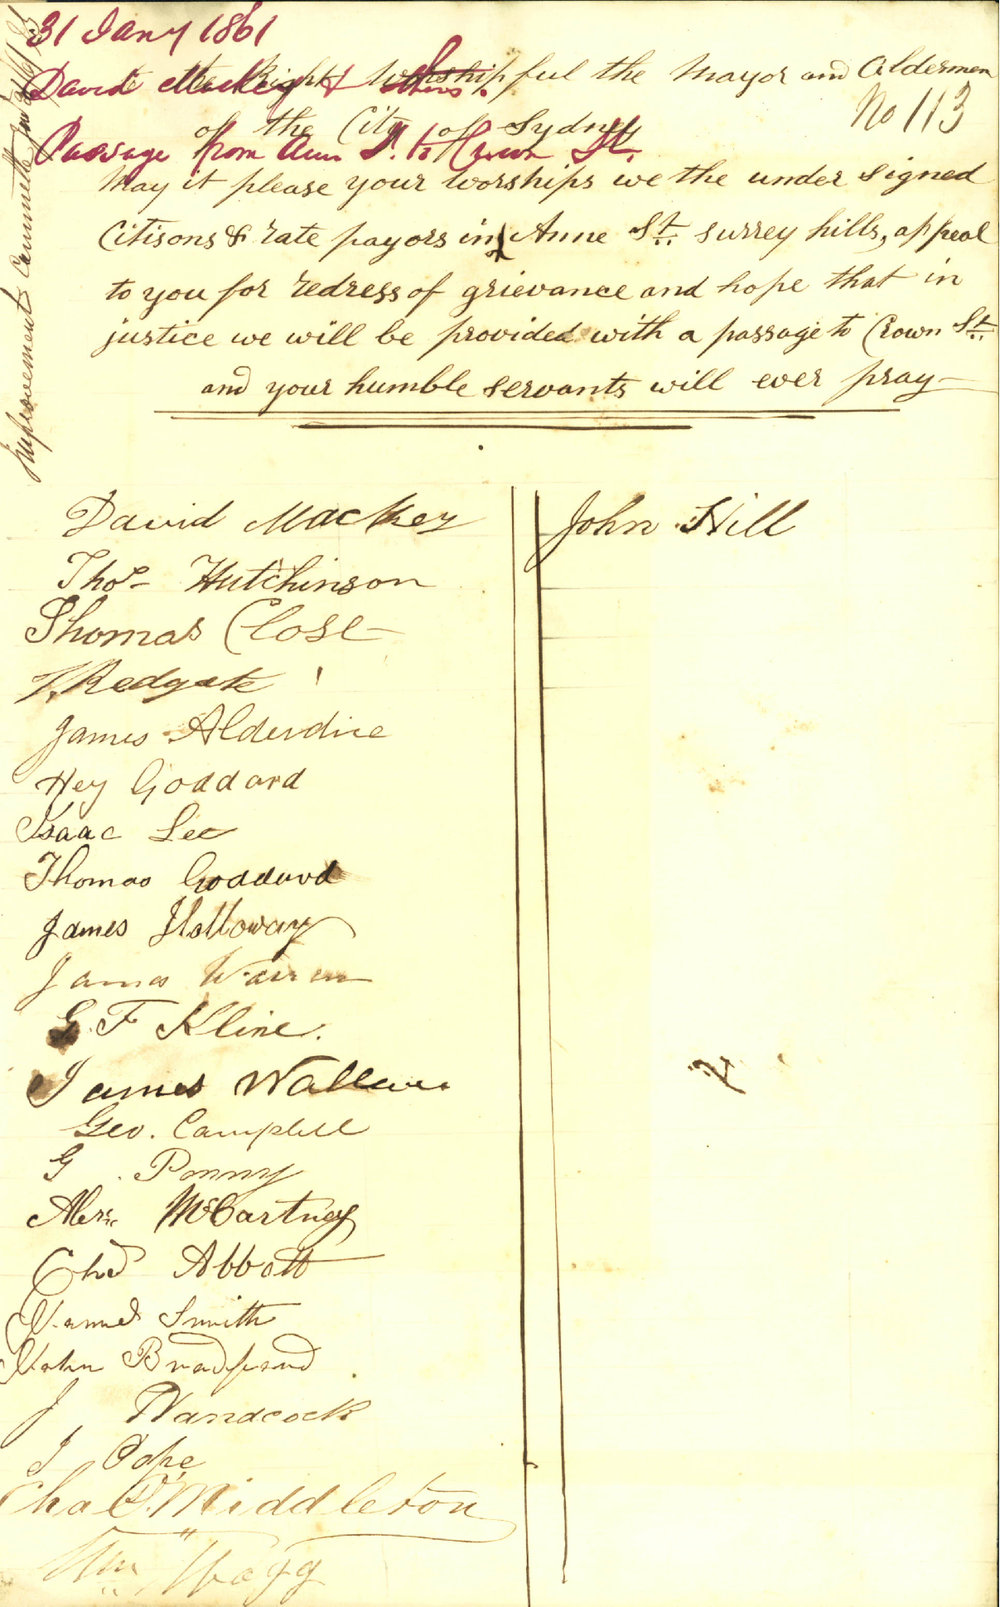 31 Jany 1861
David Mackey & others.
Passage from Ann St. to Crown St.
No 113
Improvement Committee
To the Right Worshipful the Mayor and Aldermen
of the City of Sydney
May it please your worships we the under signed
Citisons & rate payors in Anne St. surrey hills, appeal
to you for redress of grievance and hope that in
justice we will be provided with a passage to Crown St.
and your humble servants will ever pray—
David Mackey
Thos Hutchinson
Thomas Close
T. Redgate
James Alderdice
Hey Goddard
Isaac Lee
Thomas Goddard
James Holloway
James Warren
G. F Kline.
James Wallace
Geo. Campbell
G. Penny
Alexr. McCartney
Chas Abbott
James Smith
John Bradford
J Handcock
J Pope
Chas D. Middleton
Wm Wagg
John Hill